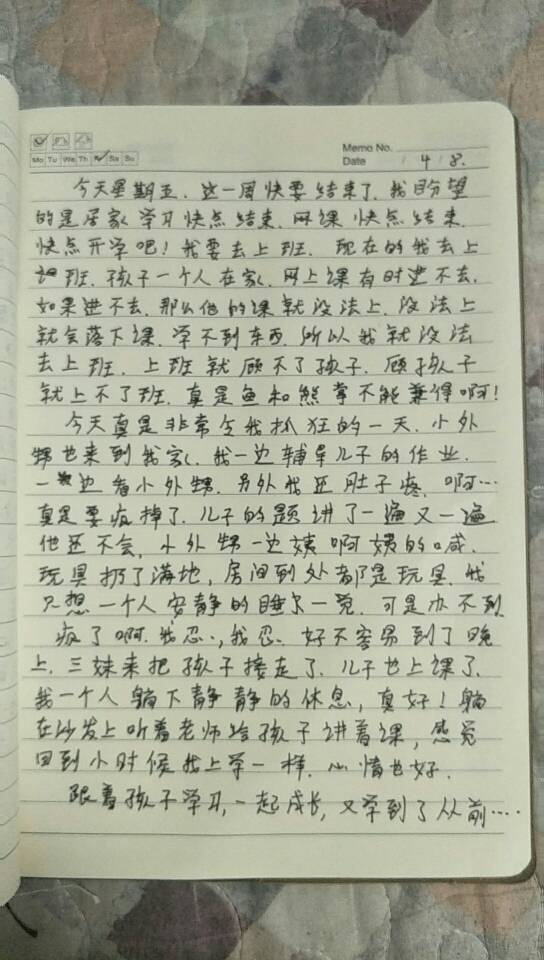 Memo No.
Mo Tu We Th Sa Su
Date / 4 / 8.
今天星期五.这一周快要结束了.我盼望
的是居家学习快点结束.网课快点结束.
快点开学吧!我要去上班.现在的我去上
班.孩子一个人在家.网上课有时进不去.
如果进不去.那么他的课就没法上.没法上
就会落下课.学不到东西.所以我就没法
去上班.上班就顾不了孩子.顾孩子
就上不了班.真是鱼和熊掌不能兼得啊!
今天真是非常令我抓狂的一天.小外
甥也来到我家.我一边辅导儿子的作业.
一边看小外甥.另外我还肚子疼.啊…
真是要疯掉了.儿子的题讲了一遍又一遍
他还不会,小外甥一边姨啊姨的喊.
玩具扔了满地,房间到处都是玩具.我
只想一个人安静的睡一觉.可是办不到
疯了啊.我忍.,我忍.好不容易到了晚
上.三妹来把孩子接走了.儿子也上课了.
我一个人躺下静静的休息,真好!躺
在沙发上听着老师给孩子讲着课,感觉
回到小时候我上学一样.心情也好.
跟着孩子学习,一起成长,又学到了从前….